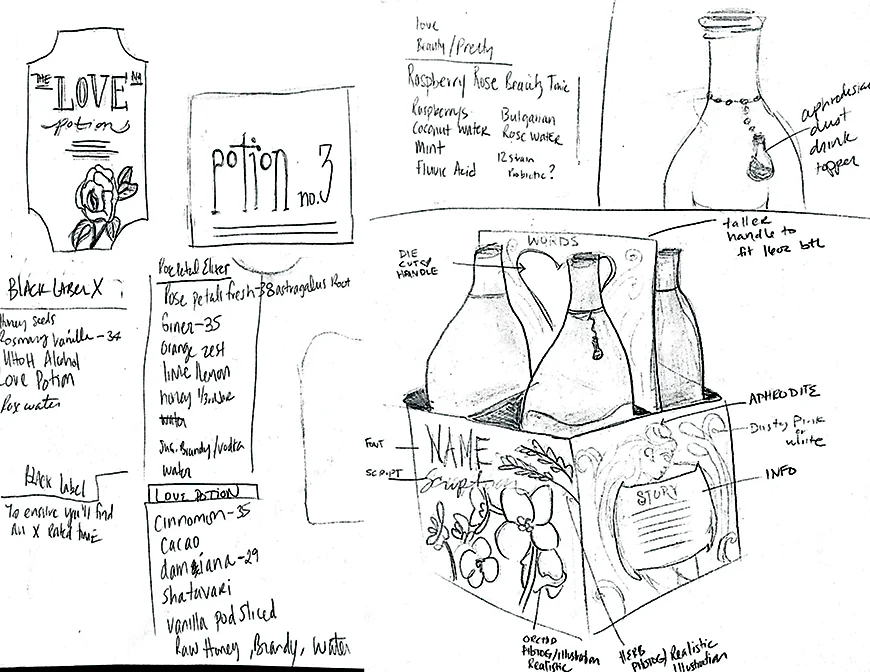 THE LOVE No
potions
potion no. 3
BLACK LABEL X
Honey seeds
Rosmary Vanilla - 34
Alcohol
Love Potion
water
Black Label
To ensure you'll find
an X Rated time
Rose petal Elixer
Rose petals fresh-38 astragalus Root
Giner-35
orange zest
lime/lemon
honey 1/3
water
Brandy/vodka
water
LOVE POTION
Cinnomon-35
Cacao
damiana-29
shatavari
vanilla pod sliced
Raw Honey, Brandy, Water
love
Beauty/Pretty
Raspberry Rose Beauty Tonic
Raspberrys
Coconut water
Mint
Fluvic Acid
Bulgarian
Rose water
12 strain
Probiotic?
aphrodesiac
dust
drink
topper
taller
handle to
fit 16oz btl
WORDS
DIE
CUT
HANDLE
FONT
NAME
SCRIPT
Scription
APHRODITE
Dusty Pink
or
white
INFO
STORY
ORCHID
PHOTOG/Illustration
Realistic
HERB
PHOTOG/Realistic
Illustration